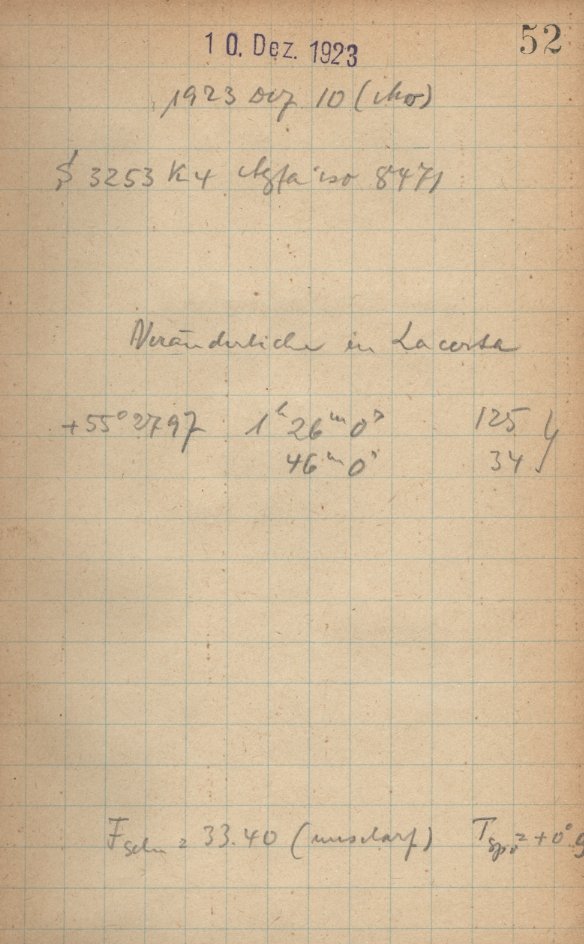 52
10. Dez. 1923
1923 Dez 10 (Mo)
3253 K4 Agfa iso 8471
Veränderliche in Lacerta
+55° 2797 1ʰ 26ᵐ 0ˢ 125
46ᵐ 0ˢ 34
F = 33.40 (unscharf) T = +0°.9